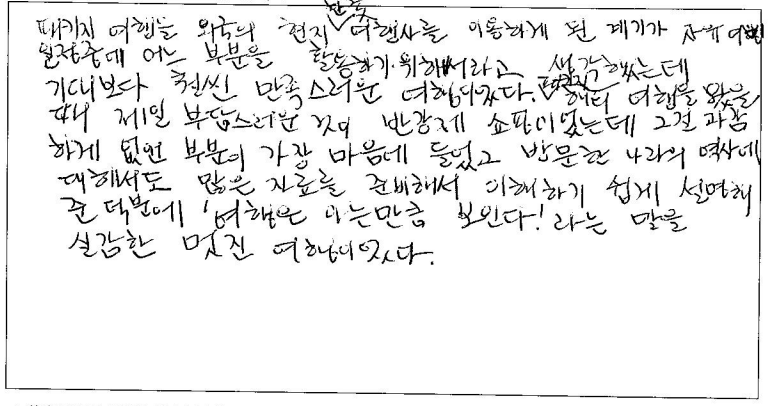 패키지 여행을 외국의 현지 한국 여행사를 이용하게 된 계기가 자유여행
일정중에 어느 부분을 활용하기 위해서라고 생각했는데
기대보다 훨씬 만족스러운 여행이었다. 패키지 해외 여행을 왔을
때 제일 부담스러운 것이 반강제 쇼핑이었는데 그걸 과감
하게 없앤 부분이 가장 마음에 들었고 방문한 나라의 역사에
대해서도 많은 자료를 준비해서 이해하기 쉽게 설명해
준 덕분에 '여행은 아는만큼 보인다!' 라는 말을
실감한 멋진 여행이었다.